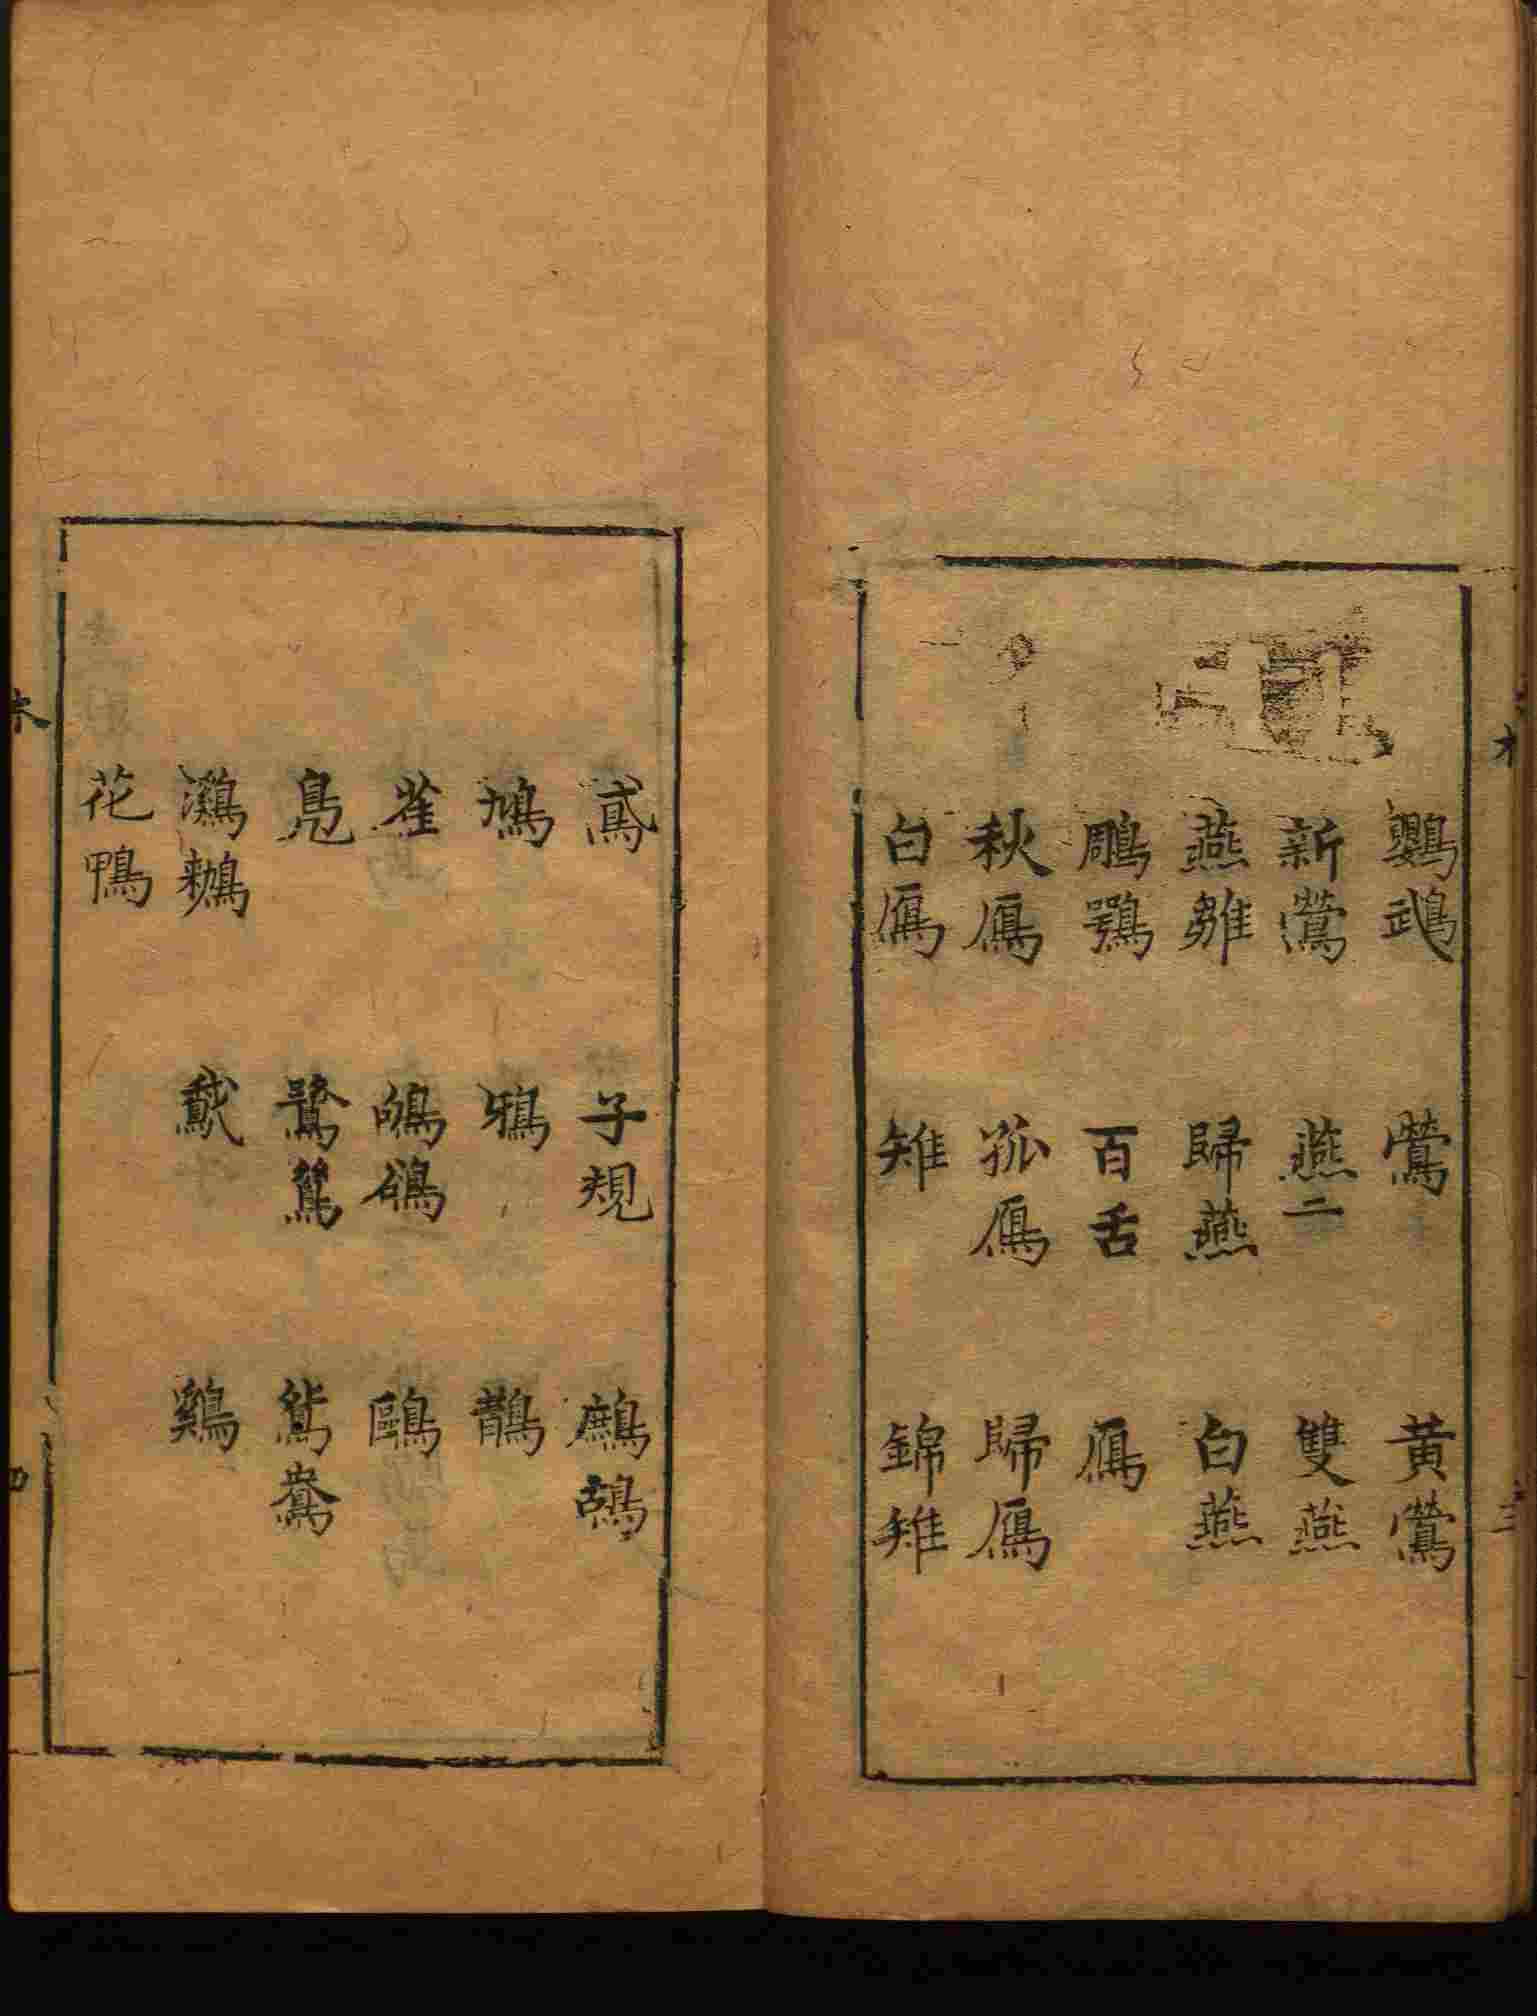 鸚䳇　鶯　黃鶯
新鶯　燕二　雙燕
燕雛　歸燕　白燕
鵰鶚　百舌　鴈
秋鴈　孤鴈　歸鴈
白鴈　雉　錦雉
三
鳶　子規　鷓鴣
鳩　鴉　鵲
雀　鶺鴒　鷗
鳧　鷺鷥　鴛鴦
鸂鶒　鷲　鷄
花鴨
四